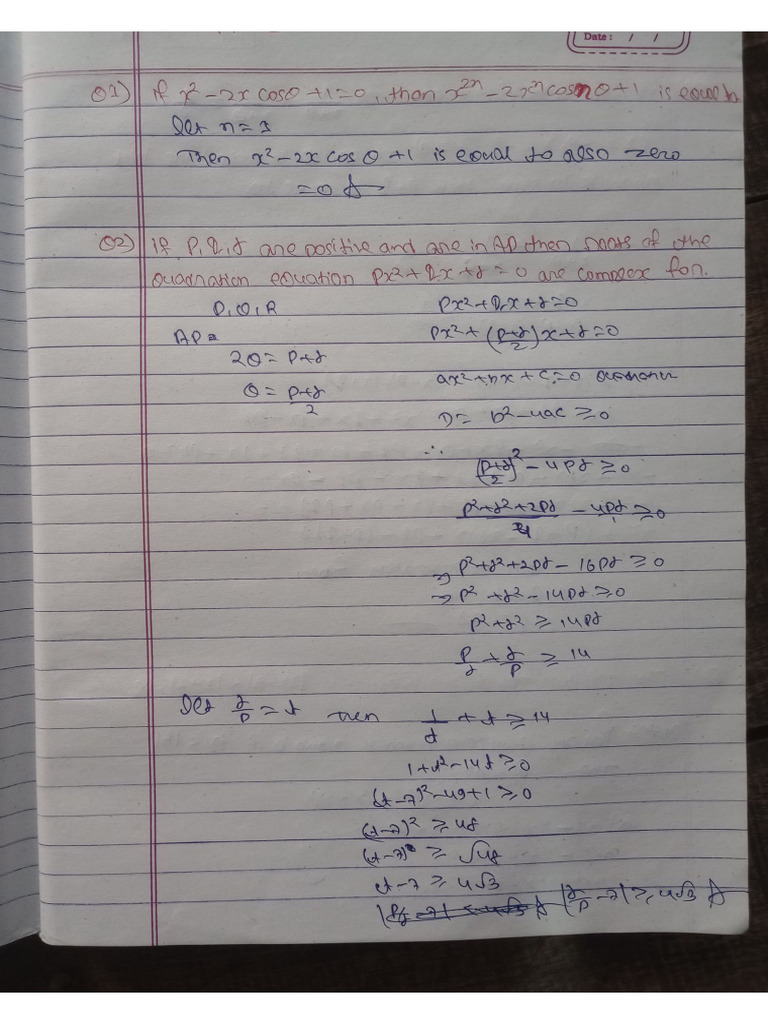 Date : / /
Q1) If x² - 2x cosθ + 1 = 0, then x²ⁿ - 2xⁿ cosnθ + 1 is equal to
Let n = 1
Then x² - 2x cos θ + 1 is equal to also zero
= 0 A
Q2) If P, Q, r are positive and are in AP then roots of the
quadration equation Px² + Qx + r = 0 are complex for.
P, Q, R
Px² + Qx + r = 0
AP =
Px² + (P+r/2)x + r = 0
2Q = P + r
ax² + bx + c = 0
Q = P+r/2
D = b² - 4ac ≥ 0
∴
(P+r/2)² - 4Pr ≥ 0
P² + r² + 2Pr / 4 - 4Pr ≥ 0
⇒ P² + r² + 2Pr - 16Pr ≥ 0
⇒ P² + r² - 14Pr ≥ 0
P² + r² ≥ 14Pr
P/r + r/P ≥ 14
Let r/P = t Then 1/t + t ≥ 14
1 + t² - 14t ≥ 0
(t-7)² - 49 + 1 ≥ 0
(t-7)² ≥ 48
(t-7) ≥ √48
t - 7 ≥ 4√3
|r/P - 7| ≥ 4√3 A